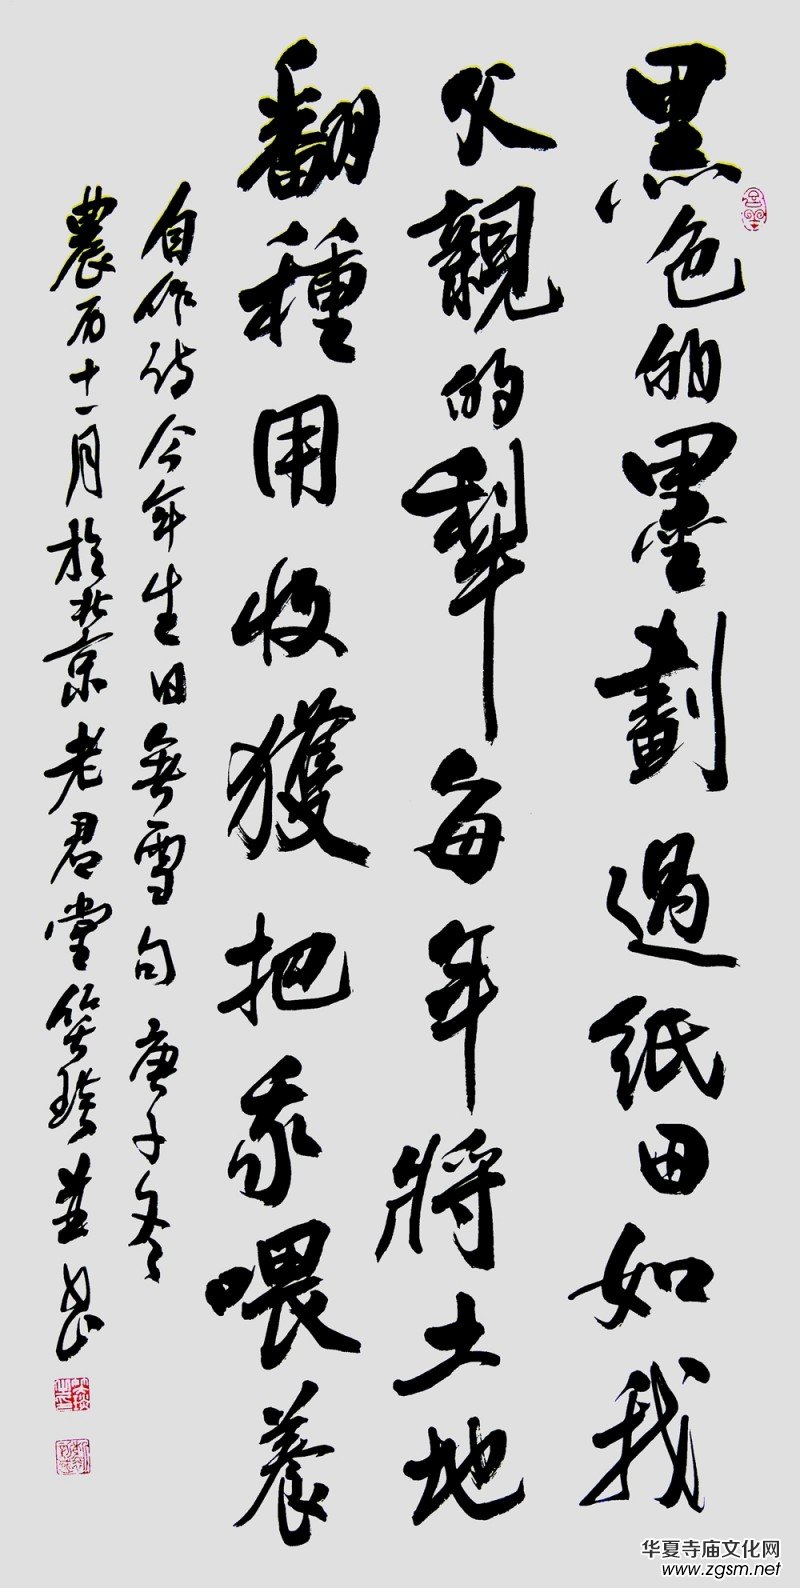 黑色的墨劃過紙田如我
父親的犁每年將土地
翻種用收獲把我喂養
自作诗今年生日無雪句 庚子冬
農历十一月於北京老君堂並书
华夏寺庙文化网
www.zgsm.net